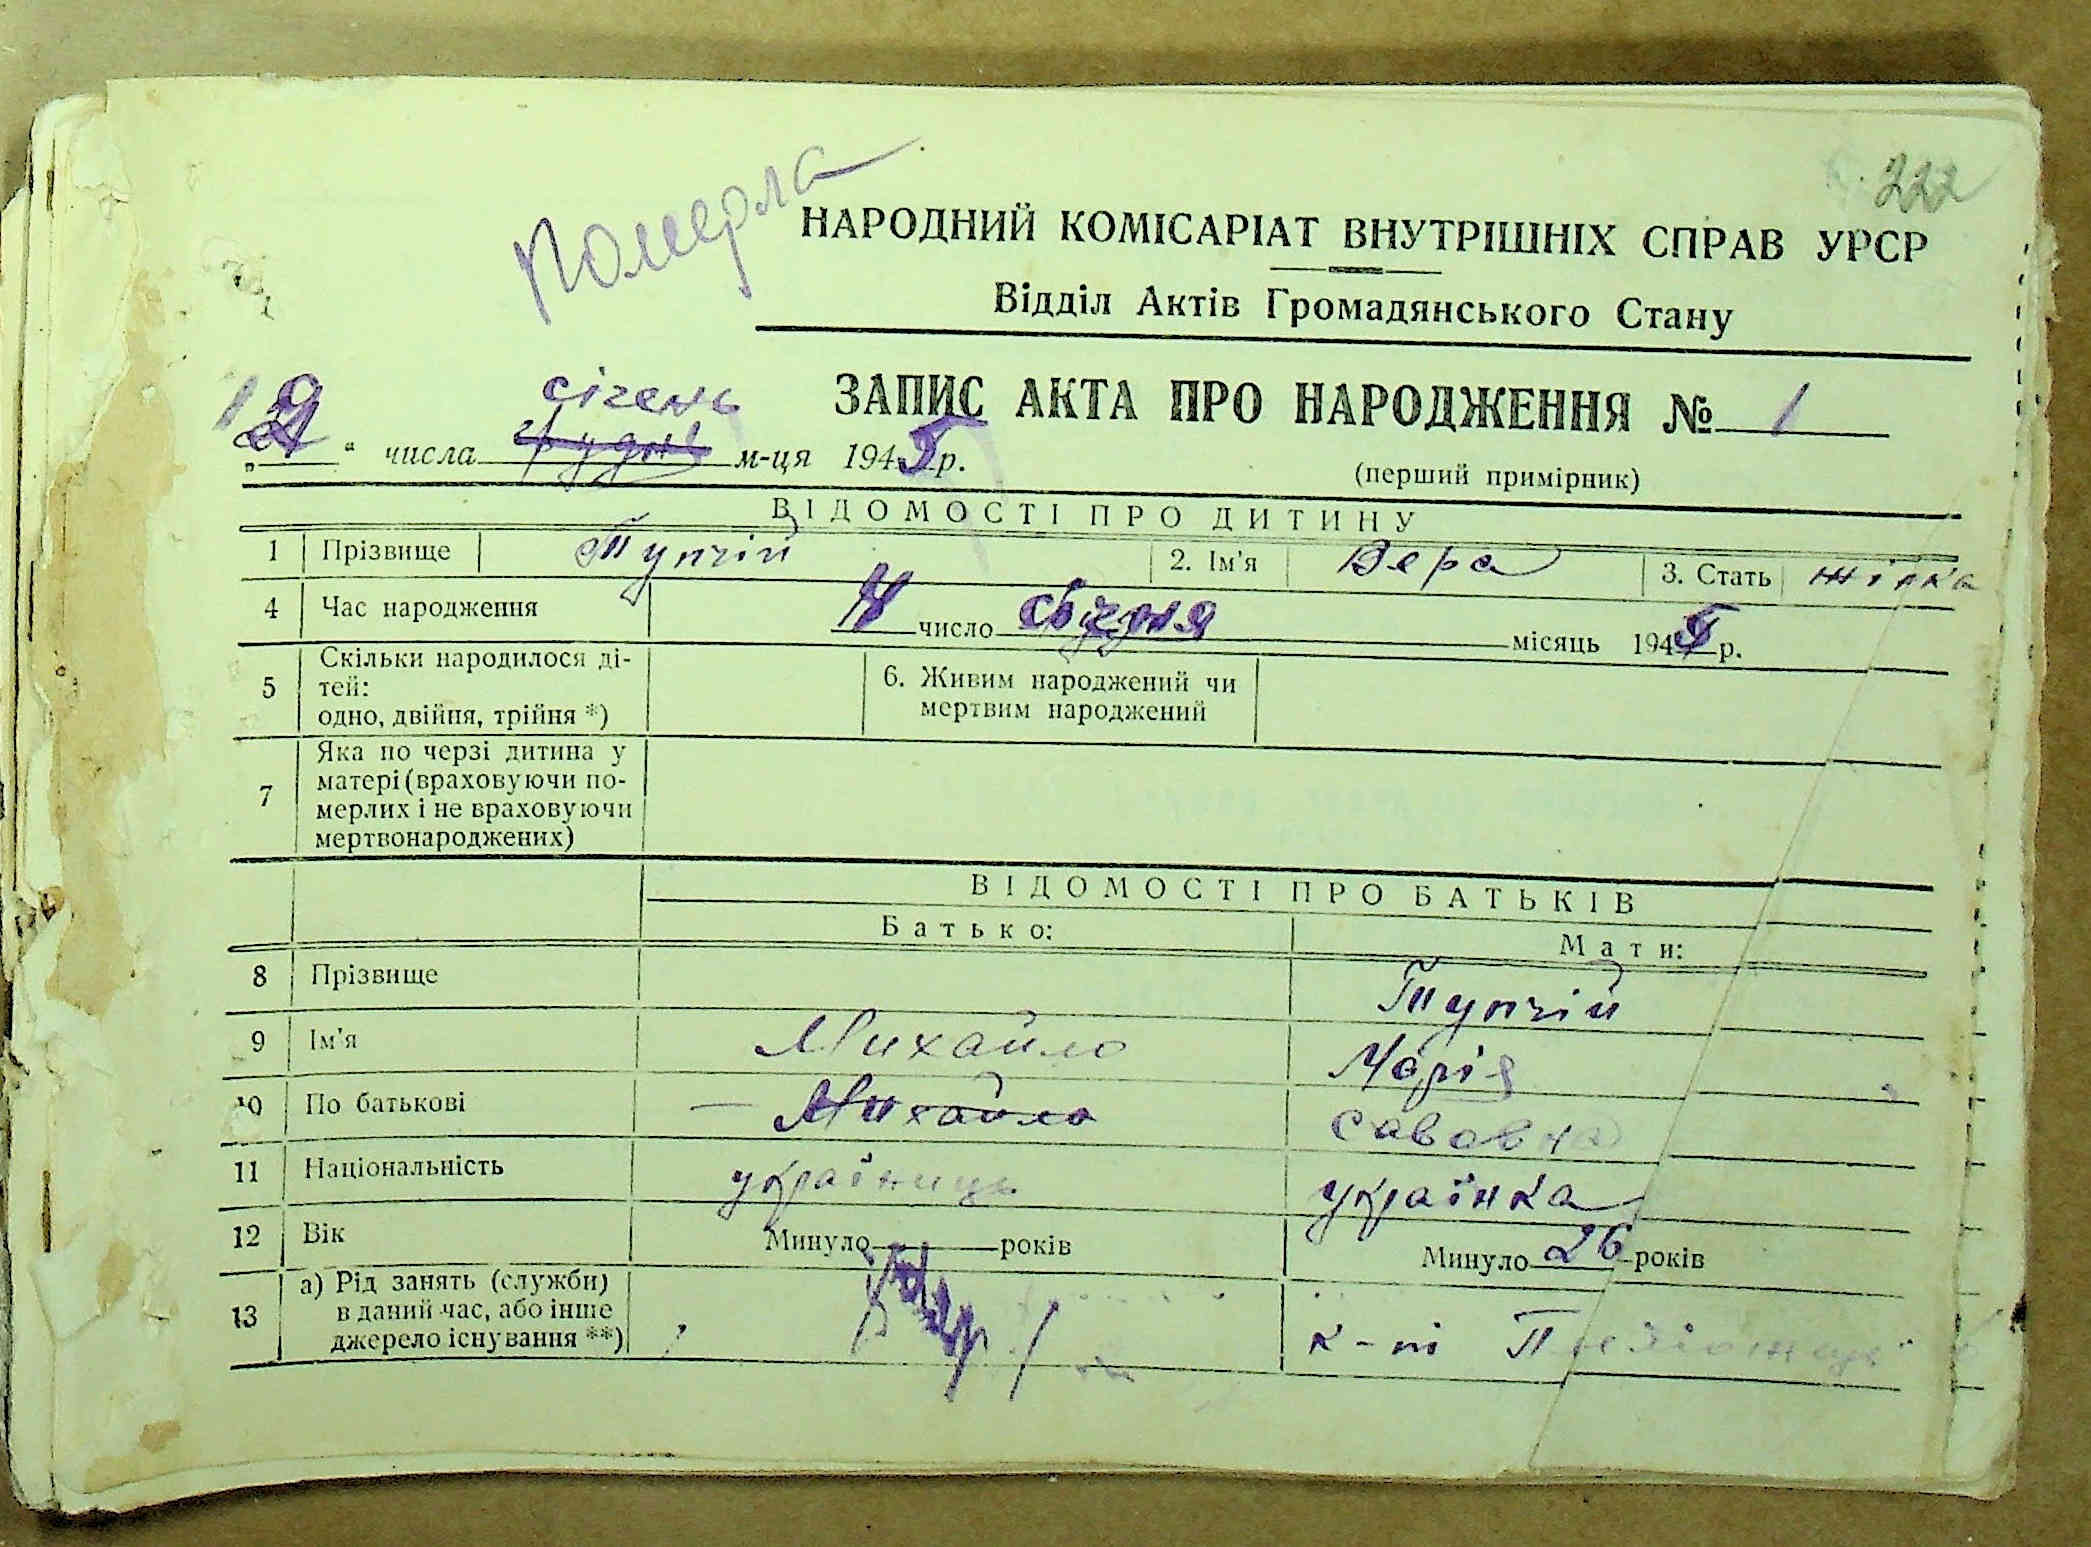 222
Померла
НАРОДНИЙ КОМІСАРІАТ ВНУТРІШНІХ СПРАВ УРСР
Відділ Актів Громадянського Стану
ЗАПИС АКТА ПРО НАРОДЖЕННЯ № 1
січень
„ “ числа грудні м-ця 1945 р.
(перший примірник)
ВІДОМОСТІ ПРО ДИТИНУ
1 Прізвище Тупчій 2. Ім'я Вера 3. Стать жінка
4 Час народження число січня місяць 1945 р.
5 Скільки народилося ді-
тей:
одно, двійня, трійня *)
6. Живим народжений чи
мертвим народжений
7 Яка по черзі дитина у
матері (враховуючи по-
мерлих і не враховуючи
мертвонароджених)
ВІДОМОСТІ ПРО БАТЬКІВ
Батько: Мати:
8 Прізвище Тупчій
9 Ім'я Михайло Марія
10 По батькові — Михайло Савовна
11 Національність українець українка
12 Вік Минуло років Минуло 26 років
13 а) Рід занять (служби)
в даний час, або інше
джерело існування **)
к-п